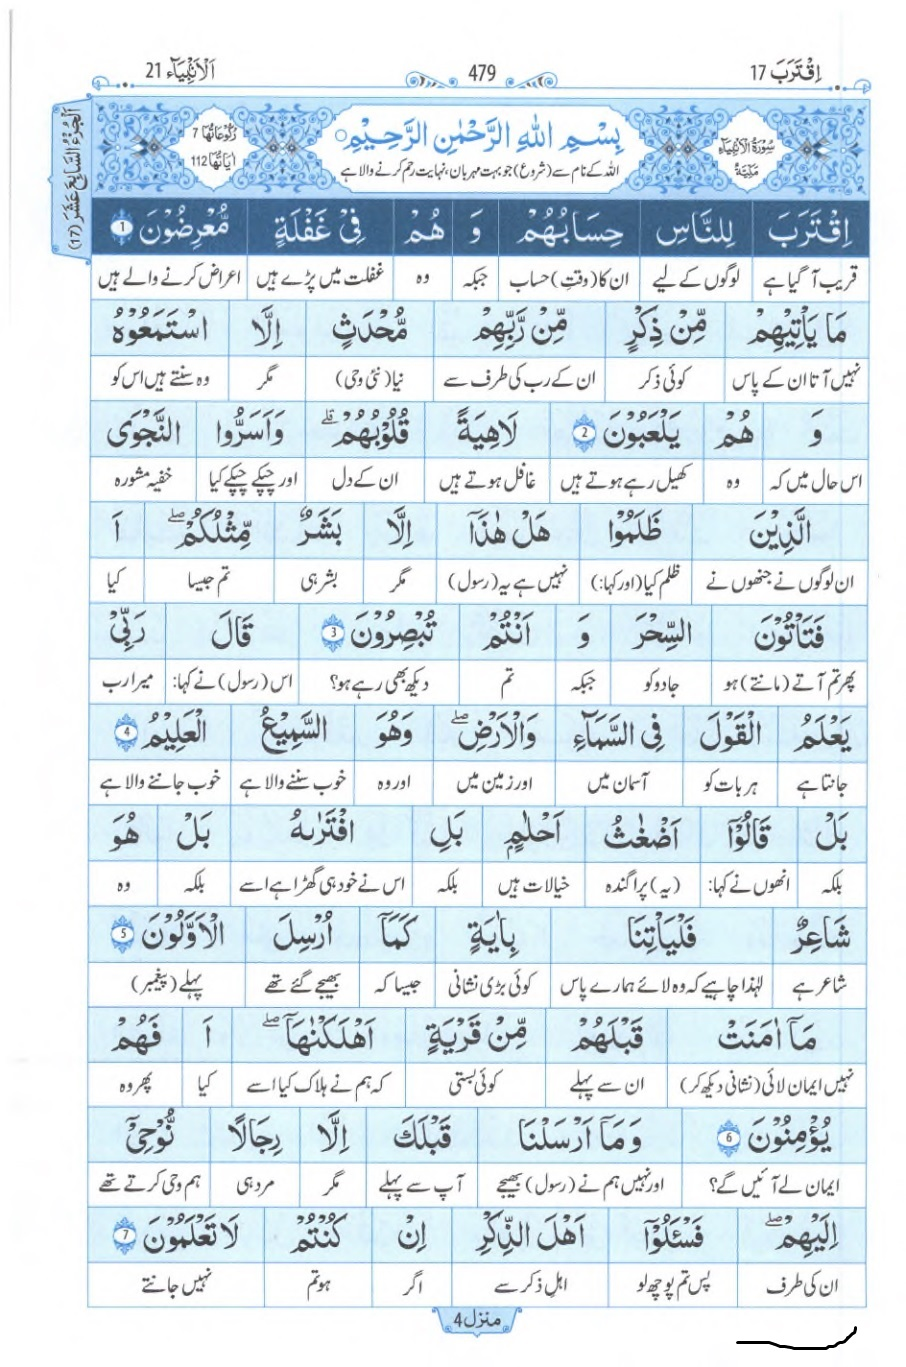 اِقْتَرَبَ 17 479 اَلْاَنْۢبِيَآء 21
اَلْجُزْءُ السَّابِعَ عَشَرَ (17)
سُوْرَةُ الْاَنْۢبِيَآءِ مَكِّيَّةٌ
بِسْمِ اللّٰهِ الرَّحْمٰنِ الرَّحِيْمِ
اللہ کے نام سے (شروع) جو بہت مہربان، نہایت رحم کرنے والا ہے
رُكُوْعَاتُهَا 7
اٰيَاتُهَا 112
اِقْتَرَبَ لِلنَّاسِ حِسَابُهُمْ وَ هُمْ فِيْ غَفْلَةٍ مُّعْرِضُوْنَ 1
قریب آ گیا ہے لوگوں کے لیے ان کا (وقتِ) حساب جبکہ وہ غفلت میں پڑے ہیں اعراض کرنے والے ہیں
مَا يَاْتِيْهِمْ مِّنْ ذِكْرٍ مِّنْ رَّبِّهِمْ مُّحْدَثٍ اِلَّا اسْتَمَعُوْهُ
نہیں آتا ان کے پاس کوئی ذکر ان کے رب کی طرف سے نیا (نئی وحی) مگر وہ سنتے ہیں اس کو
وَ هُمْ يَلْعَبُوْنَ 2 لَاهِيَةً قُلُوْبُهُمْ ؕ وَاَسَرُّوا النَّجْوَى
اس حال میں کہ وہ کھیل رہے ہوتے ہیں غافل ہوتے ہیں ان کے دل اور چپکے چپکے کیا خفیہ مشورہ
الَّذِيْنَ ظَلَمُوْا هَلْ هٰذَآ اِلَّا بَشَرٌ مِّثْلُكُمْ ۚ اَ
ان لوگوں نے جنھوں نے ظلم کیا (اور کہا:) نہیں ہے یہ (رسول) مگر بشر ہی تم جیسا کیا
فَتَاْتُوْنَ السِّحْرَ وَ اَنْتُمْ تُبْصِرُوْنَ 3 قَالَ رَبِّيْ
پھر تم آتے (مانتے) ہو جادو کو جبکہ تم دیکھ بھی رہے ہو؟ اس (رسول) نے کہا: میرا رب
يَعْلَمُ الْقَوْلَ فِي السَّمَآءِ وَالْاَرْضِ ۖ وَهُوَ السَّمِيْعُ الْعَلِيْمُ 4
جانتا ہے ہر بات کو آسمان میں اور زمین میں اور وہ خوب سننے والا ہے خوب جاننے والا ہے
بَلْ قَالُوْٓا اَضْغٰثُ اَحْلٰمٍ بَلِ افْتَرٰىهُ بَلْ هُوَ
بلکہ انھوں نے کہا: (یہ) پراگندہ خیالات ہیں بلکہ اس نے خود ہی گھڑا ہے اسے بلکہ وہ
شَاعِرٌ فَلْيَاْتِنَا بِاٰيَةٍ كَمَآ اُرْسِلَ الْاَوَّلُوْنَ 5
شاعر ہے لہٰذا چاہیے کہ وہ لائے ہمارے پاس کوئی بڑی نشانی جیسا کہ بھیجے گئے تھے پہلے (پیغمبر)
مَآ اٰمَنَتْ قَبْلَهُمْ مِّنْ قَرْيَةٍ اَهْلَكْنٰهَا ۚ اَ فَهُمْ
نہیں ایمان لائی (نشانی دیکھ کر) ان سے پہلے کوئی بستی کہ ہم نے ہلاک کیا اسے کیا پھر وہ
يُؤْمِنُوْنَ 6 وَمَآ اَرْسَلْنَا قَبْلَكَ اِلَّا رِجَالًا نُّوْحِيْٓ
ایمان لے آئیں گے؟ اور نہیں ہم نے (رسول) بھیجے آپ سے پہلے مگر مرد ہی ہم وحی کرتے تھے
اِلَيْهِمْ ۖ فَسْـَٔلُوْٓا اَهْلَ الذِّكْرِ اِنْ كُنْتُمْ لَا تَعْلَمُوْنَ 7
ان کی طرف پس تم پوچھ لو اہلِ ذکر سے اگر ہو تم نہیں جانتے
منزل 4